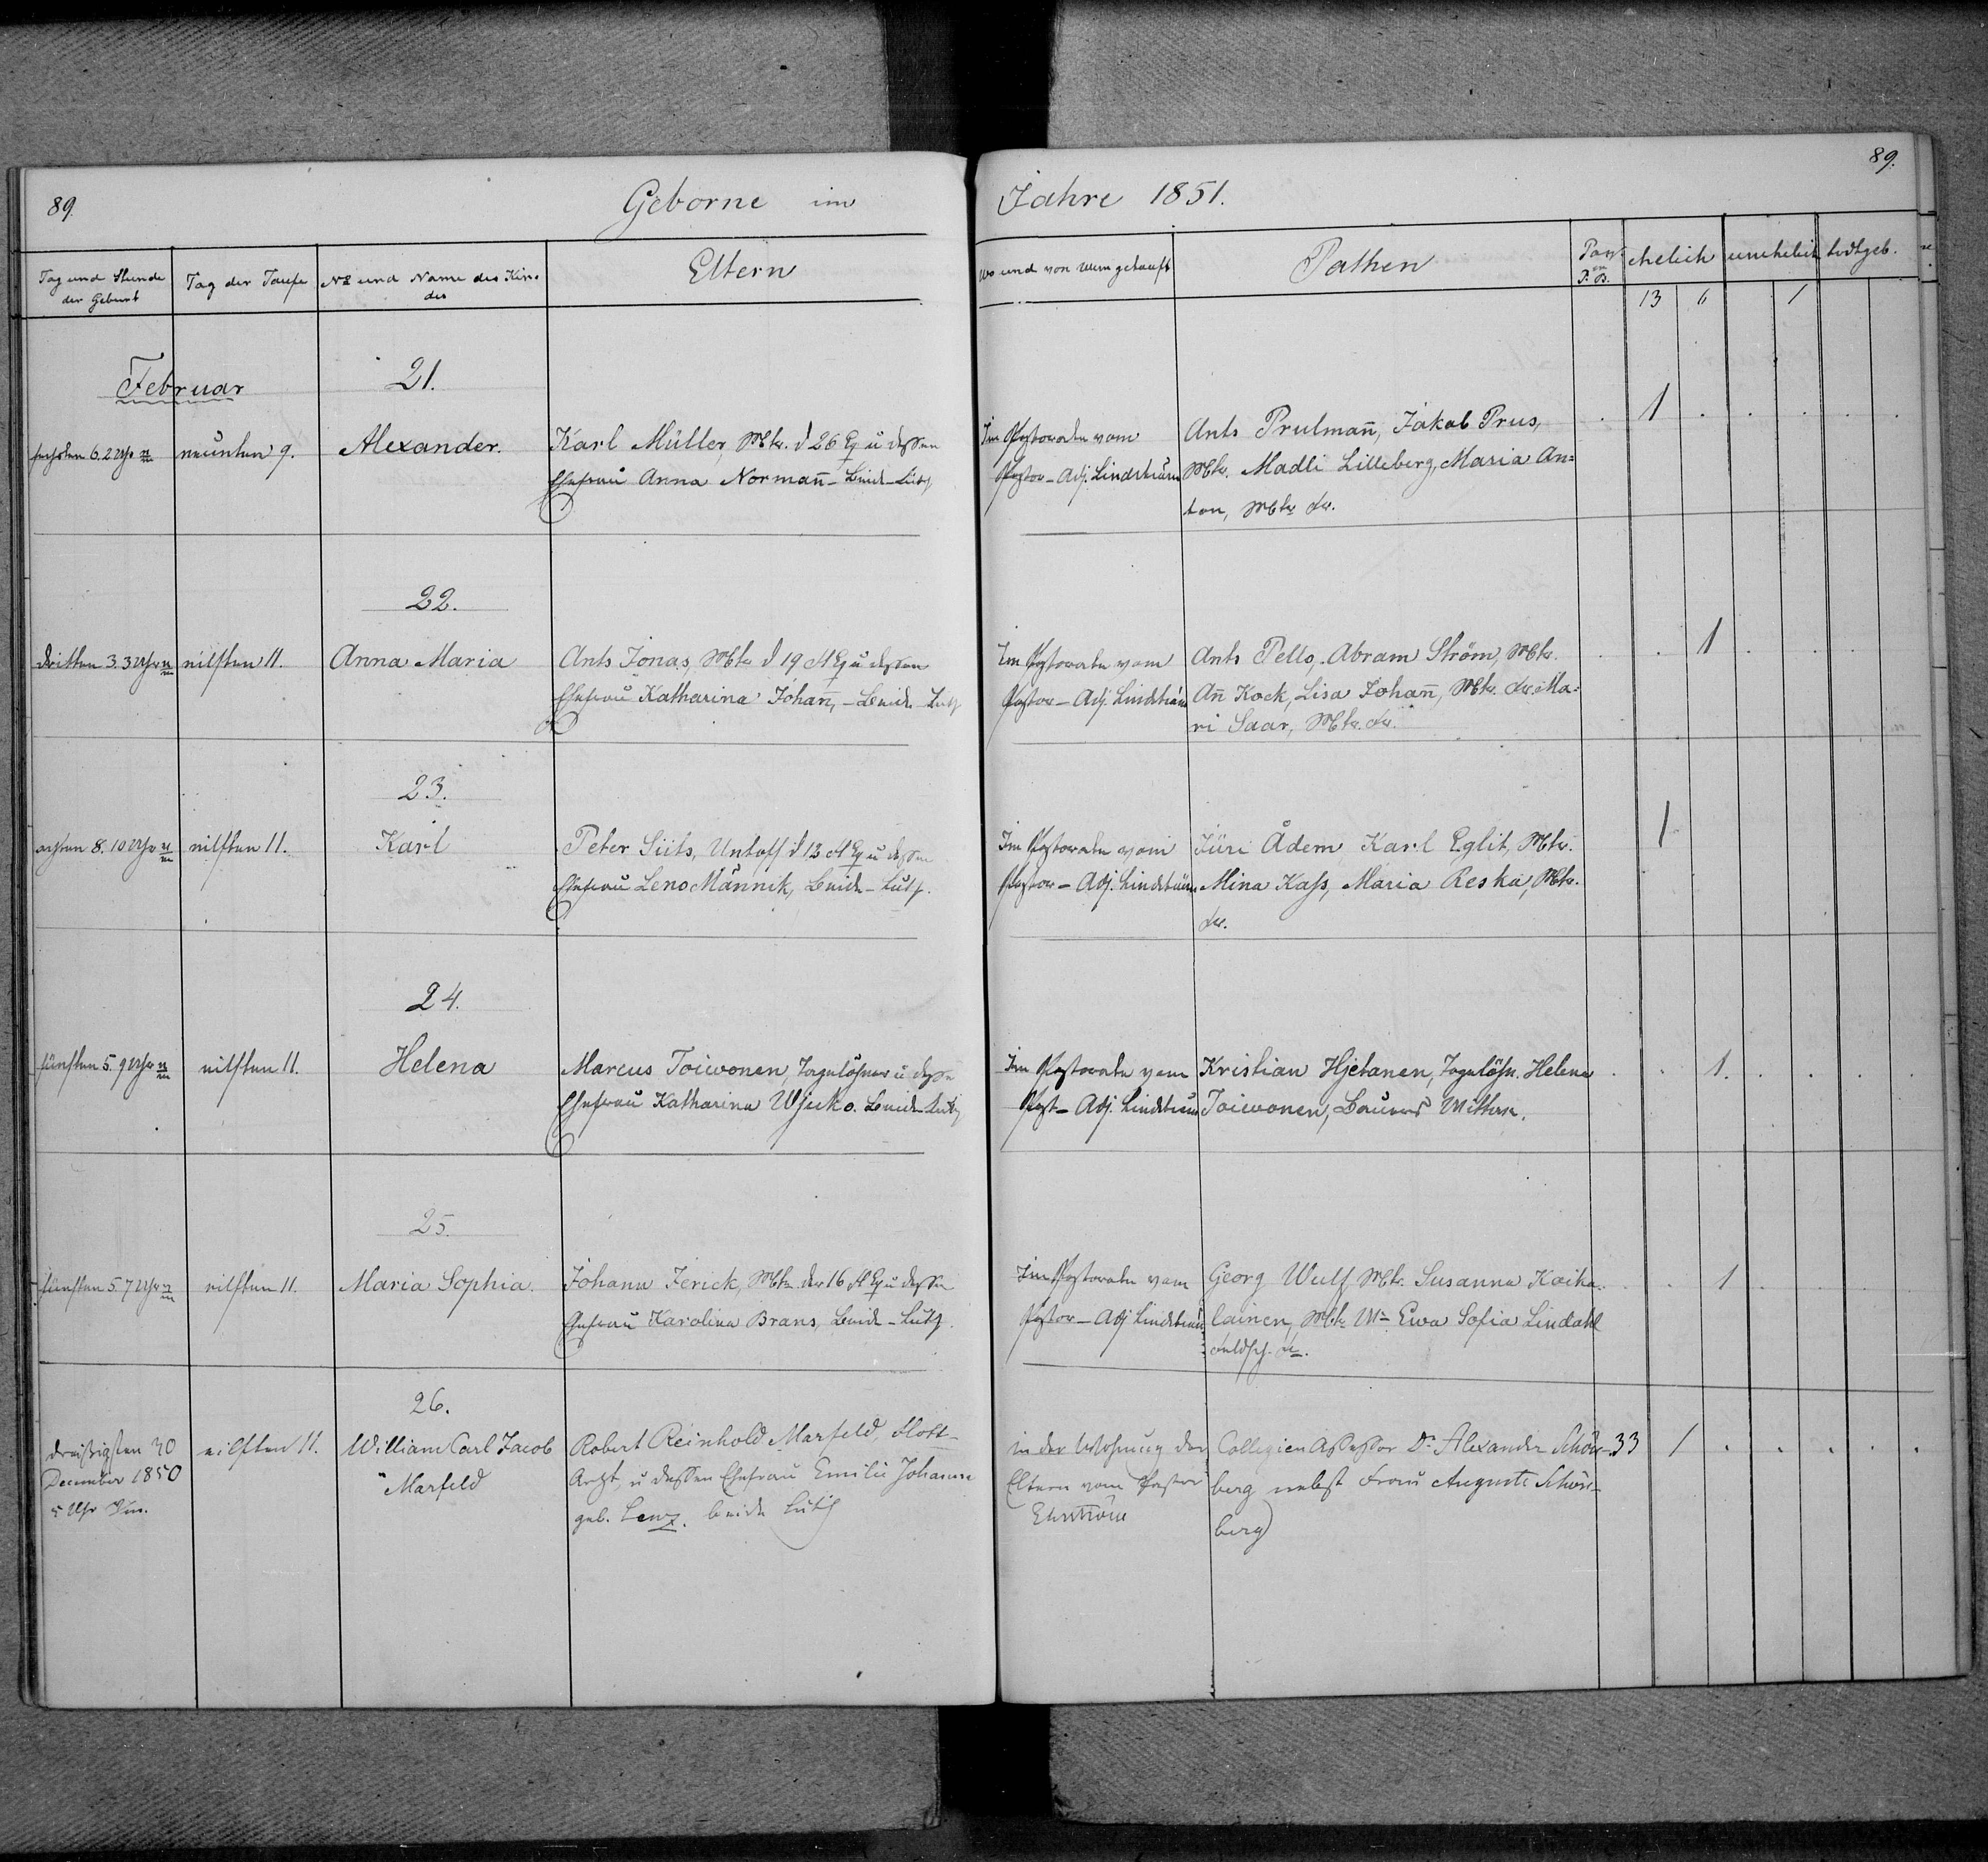 89.
Geborne im
Jahre 1851.
89.
Tag und Stunde der Geburt
Tag der Taufe
No und Name des Kindes
Eltern
Wo und von wem getauft
Pathen
Pag. P. B.
ehelich
unehelich
todtgeb.
13 6 1
Februar
21.
sechsten 6. 2 Uhr
neunten 9.
Alexander.
Karl Müller, Mtr. d 26 Eq u dessen
Ehefrau Anna Normañ - beide Luth
Im Pastorate vom
Pastor-Adj. Lindström
Ants Prulmañ, Jakob Prus,
Mtr. Madli Lilleberg, Maria An=
ton, Mtr Fr.
1
22.
dritten 3. 3 Uhr
eilften 11.
Anna Maria
Ants Jonas, Mtr d 19 Fl Eq u dessen
Ehefrau Katharina Johañ, - beide Luth
Im Pastorate vom
Pastor-Adj. Lindström
Ants Pello, Abram Ström, Mtr.
Añ Kock, Lisa Johañ, Mtr. Fr. Ma=
ri Saar, Mtr. Fr.
1
23.
achten 8. 10 Uhr
eilften 11.
Karl
Peter Siits, Untoff d 13 Fl Eq u dessen
Ehefrau Leno Männik, beide - Luth.
Im Pastorate vom
Pastor-Adj. Lindström
Jüri Ådem Karl Eglit, Mtr.
Mina Kass, Maria Reska, Mtr.
Fr.
1
24.
fünften 5. 9 Uhr
eilften 11.
Helena
Marcus Toiwonen, Tagelöhner u dessen
Ehefrau Katharina Wjuko. beide Luth
Im Pastorate vom
Past-Adj. Lindström
Kristian Hjetanen, Tagelöhn. Helena
Toiwonen, Bauers Wittwe.
1.
25.
fünften 5. 7 Uhr
eilften 11.
Maria Sophia.
Johann Jerick, Mtr. der 16 Fl Eq u dessen
Ehefrau Karolina Brans, beide - Luth.
Im Pastorate vom
Pastor-Adj Lindström
Georg Wulf Mtr. Susanna Koika=
lainen, Mtr Ww Ewa Sofia Lindahl
Feldsch. Fr.
1
26.
dreißigsten 30
December 1850
5 Uhr Vm.
eilften 11.
William Carl Jacob
Marfeld
Robert Reinhold Marfeld, Flott-
Arzt, u dessen Ehefrau Emilie Johanna
geb. Lenz. beide Luth
in der Wohnung der
Eltern vom Pastor
Ehrström
Collegien Assessor Dr. Alexander Schön-
berg nebst Frau Auguste Schön-
berg
33 1